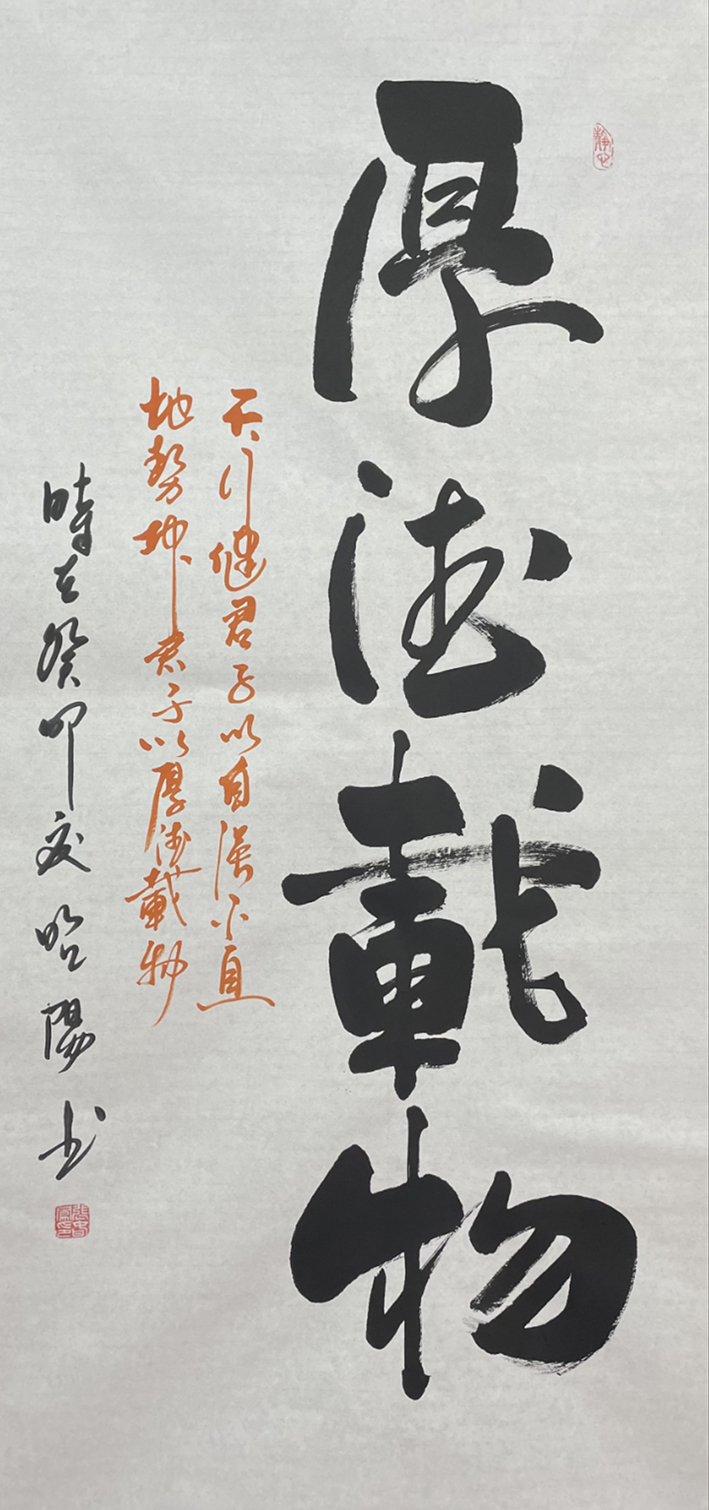 靜心
厚德載物
天行健君子以自强不息
地勢坤君子以厚德載物
時在癸卯夏昭陽书